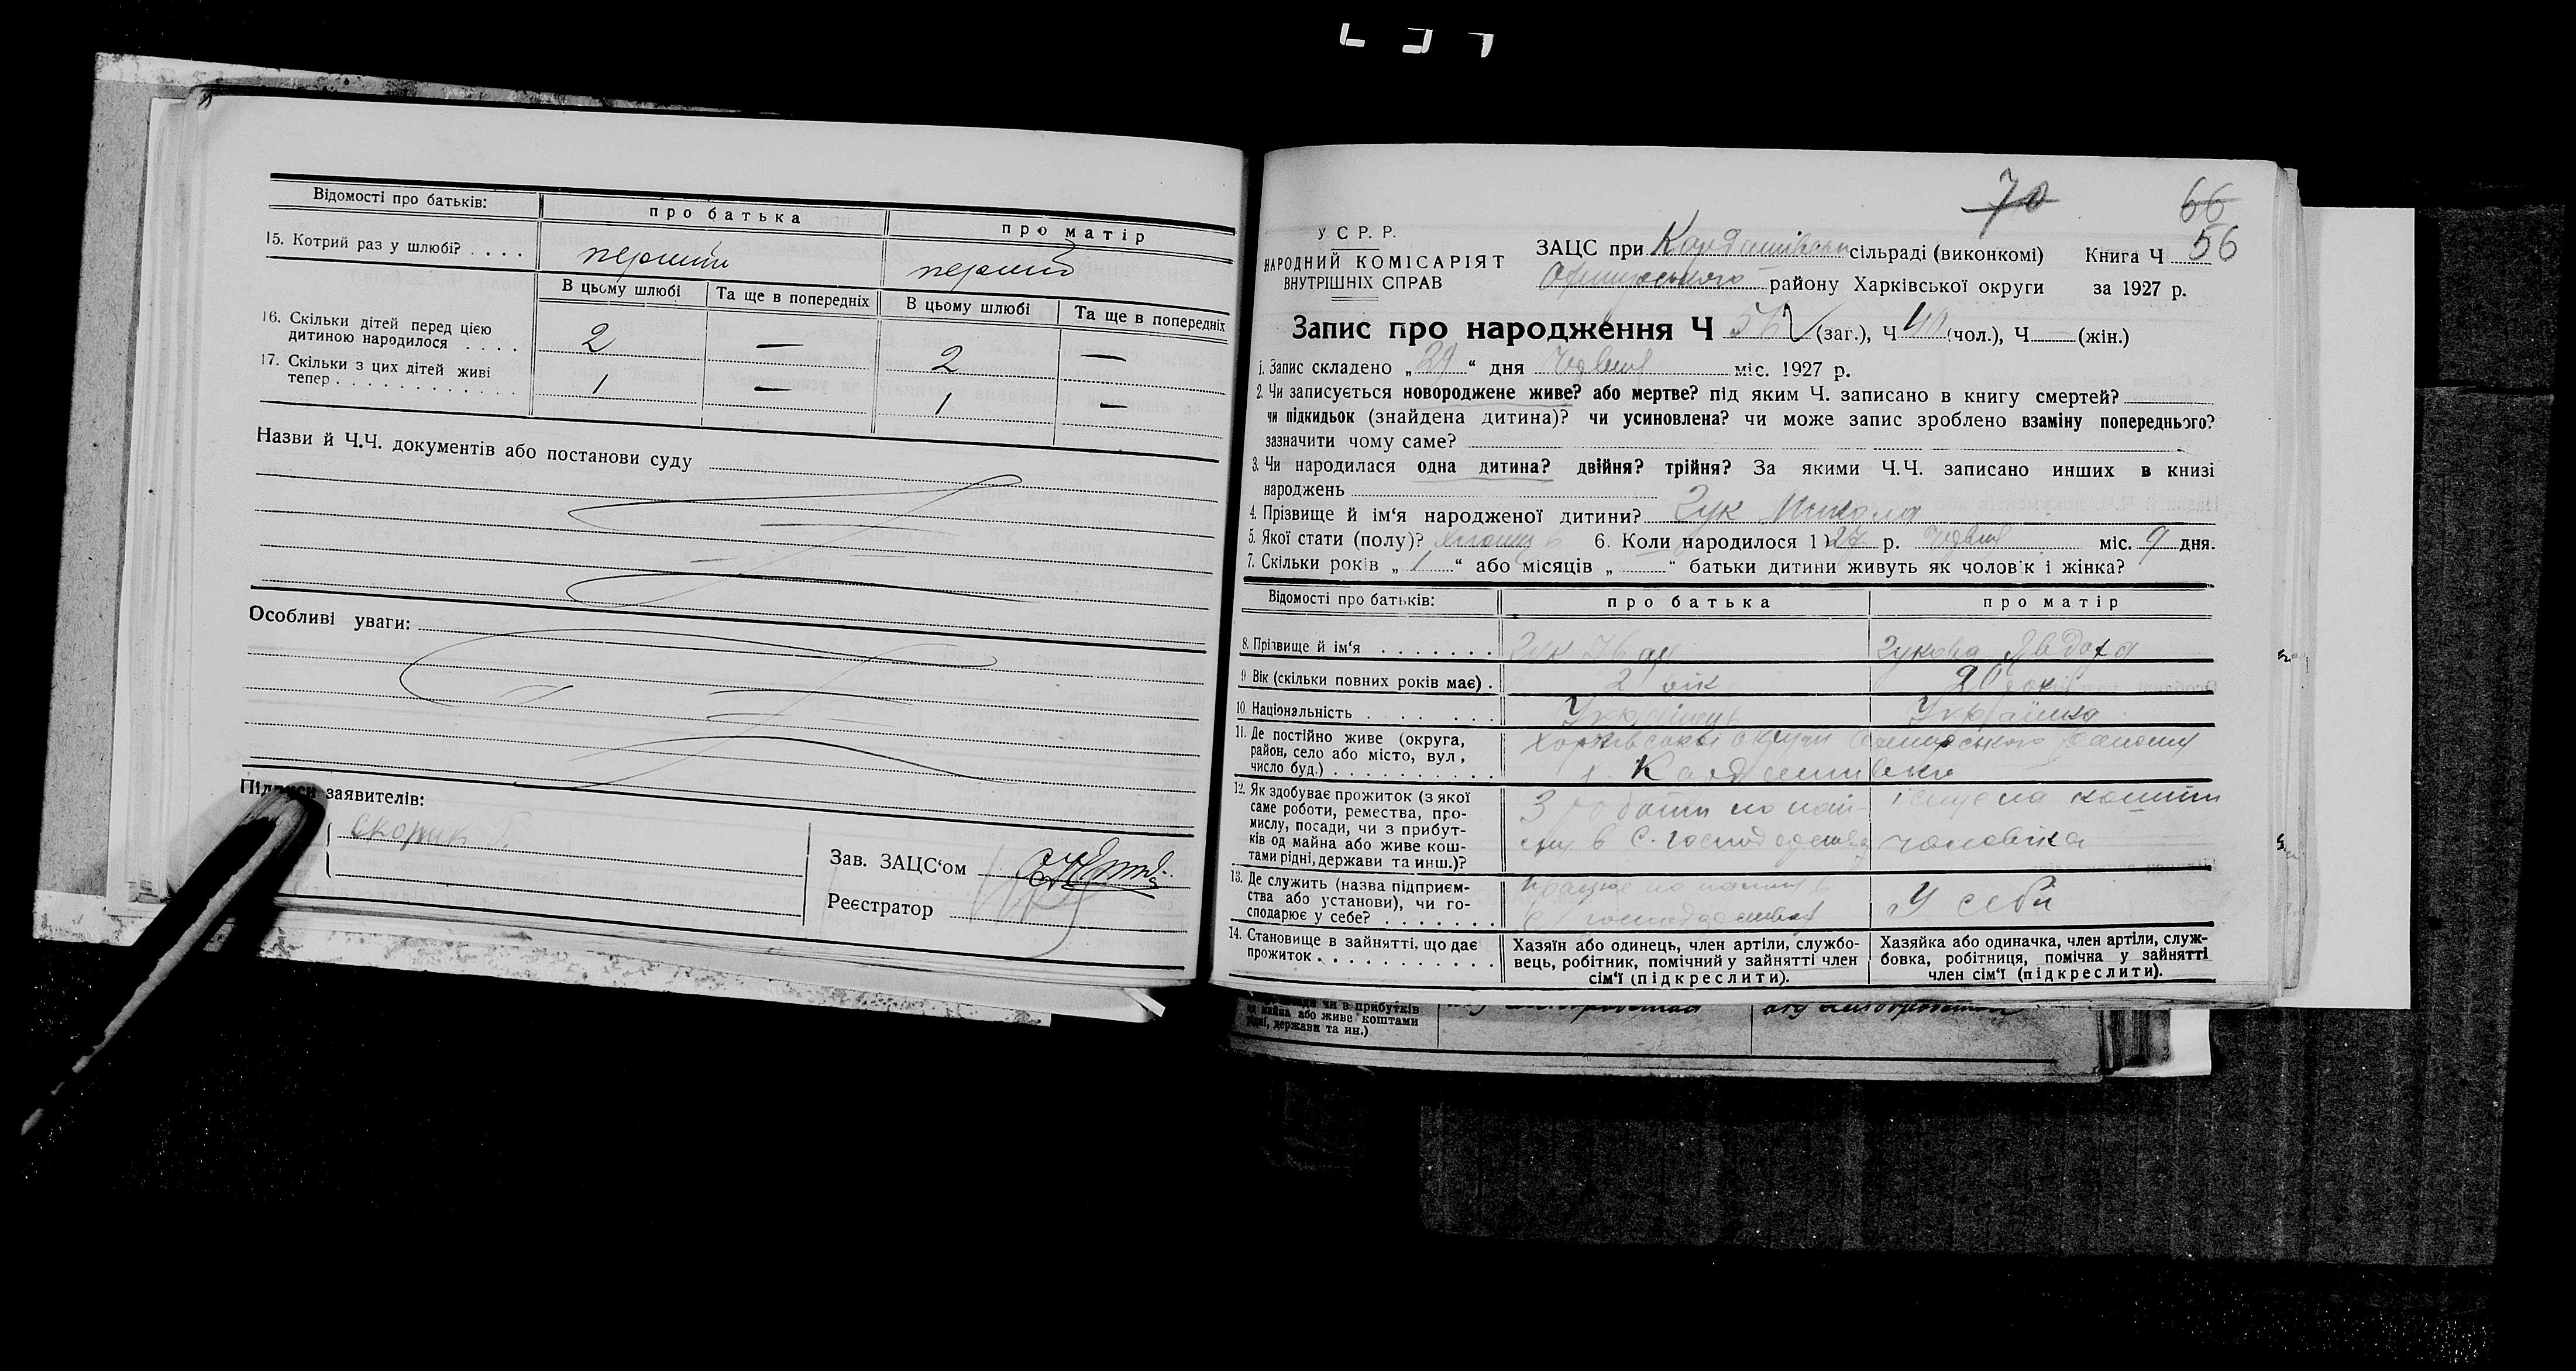 Відомості про батьків:
про батька
про матір
15. Котрий раз у шлюбі? . . . .
перший
перший
В цьому шлюбі
Та ще в попередніх
В цьому шлюбі
Та ще в попередніх
16. Скільки дітей перед цією
дитиною народилося . . . .
2
—
2
—
17. Скільки з цих дітей живі
тепер . . . . . . . . . . .
1
—
1
—
Назви й Ч.Ч. документів або постанови суду
Особливі уваги:
Підписи заявителів:
Скорик
Зав. ЗАЦС'ом
Реєстратор
70
66
56
У С Р. Р.
НАРОДНИЙ КОМІСАРІЯТ
ВНУТРІШНІХ СПРАВ
ЗАЦС при сільраді (виконкомі)
Книга Ч
району Харківської округи
за 1927 р.
Запис про народження Ч (заг.), Ч (чол.), Ч — (жін.)
1. Запис складено „29“ дня міс. 1927 р.
2. Чи записується новороджене живе? або мертве? під яким Ч. записано в книгу смертей?
чи підкидьок (знайдена дитина)? чи усиновлена? чи може запис зроблено взаміну попереднього?
зазначити чому саме?
3. Чи народилася одна дитина? двійня? трійня? За якими Ч.Ч. записано инших в книзі
народжень
4. Прізвище й ім'я народженої дитини? Зук Микола
5. Якої стати (полу)? 6. Коли народилося 1927 р. міс. 9 дня.
7. Скільки років „1“ або місяців „ “ батьки дитини живуть як чоловік і жінка?
Відомості про батьків:
про батька
про матір
8. Прізвище й ім'я . . . . . . .
Зук Іван
Зукова Явдоха
9 Вік (скільки повних років має) .
10. Національність . . . . . . .
Українец
Українка
11. Де постійно живе (округа,
район, село або місто, вул,
число буд.) . . . . . . . . . .
Харківської округи
12. Як здобуває прожиток (з якої
саме роботи, ремества, про-
мислу, посади, чи з прибут-
ків од майна або живе кош-
тами рідні, держави та инш.)?
З роботи по най-
в С. господарстві
на кошти
чоловіка
13. Де служить (назва підприєм-
ства або установи), чи го-
сподарює у себе? . . . . . . .
У себи
14. Становище в зайнятті, що дає
прожиток . . . . . . . . . . .
Хазяїн або одинець, член артіли, службо-
вець, робітник, помічний у зайнятті член
сім'ї (підкреслити).
Хазяйка або одиначка, член артіли, служ-
бовка, робітниця, помічна у зайнятті
член сім'ї (підкреслити).
чи в прибутків
од майна або живе коштами
рідні, держави та ин.)